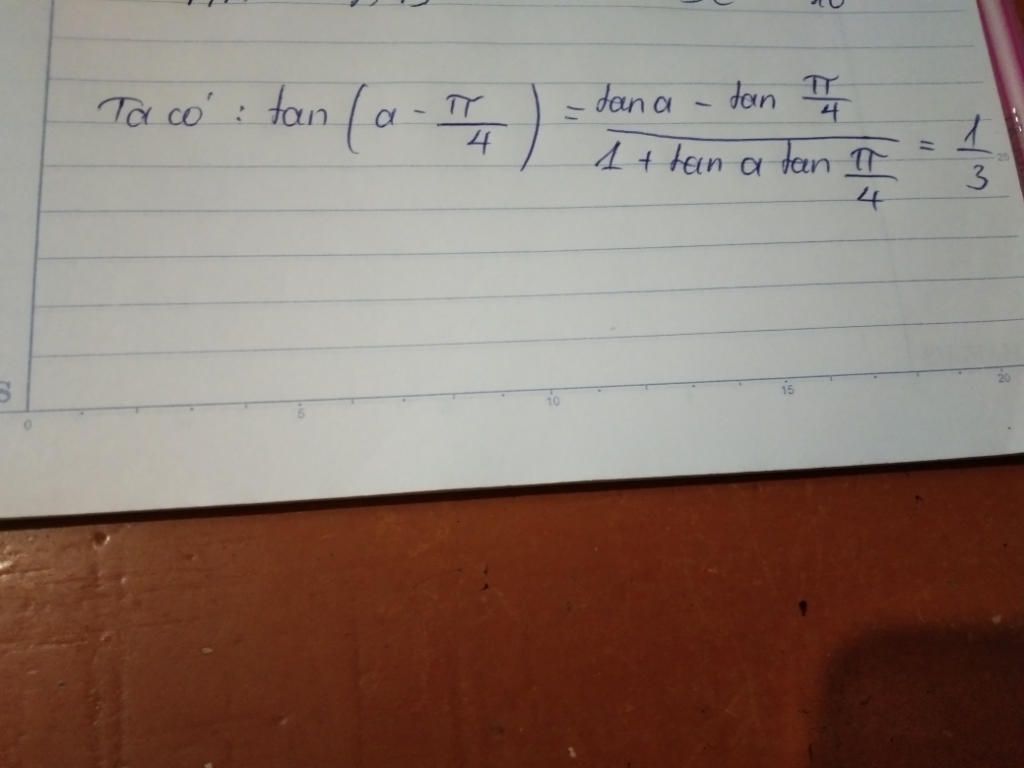 Ta có : tan ( a - π/4 ) = (tan a - tan π/4) / (1 + tan a tan π/4) = 1/3
S
0 5 10 15 20
25